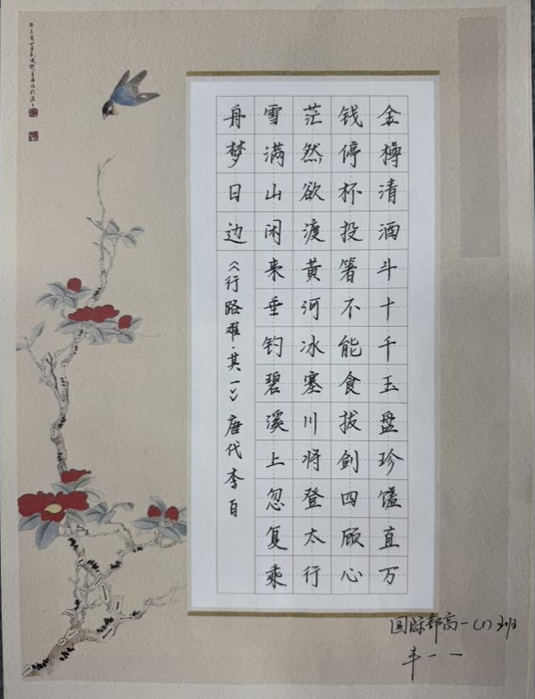 金樽清酒斗十千玉盘珍馐直万
钱停杯投箸不能食拔剑四顾心
茫然欲渡黄河冰塞川将登太行
雪满山闲来垂钓碧溪上忽复乘
舟梦日边《行路难·其一》唐代李白
国际部高一(1)班
丰一一